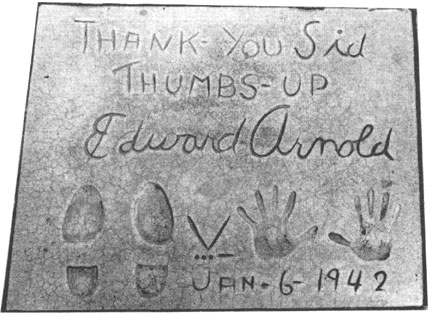 THANK-YOU Sid
THUMBS-UP
Edward Arnold
V
...-
JAN-6-1942